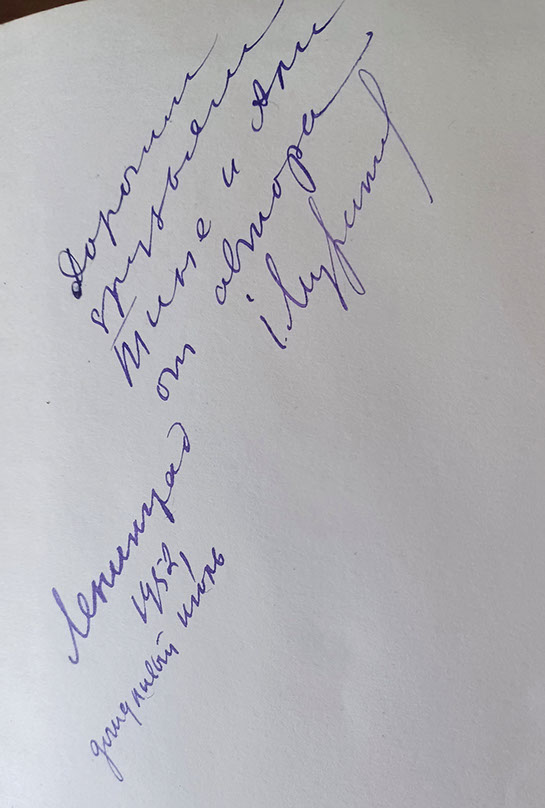 Дорогим
друзьям
Тине и Ани
от автора
Ленинград
1952,
дождливый июль